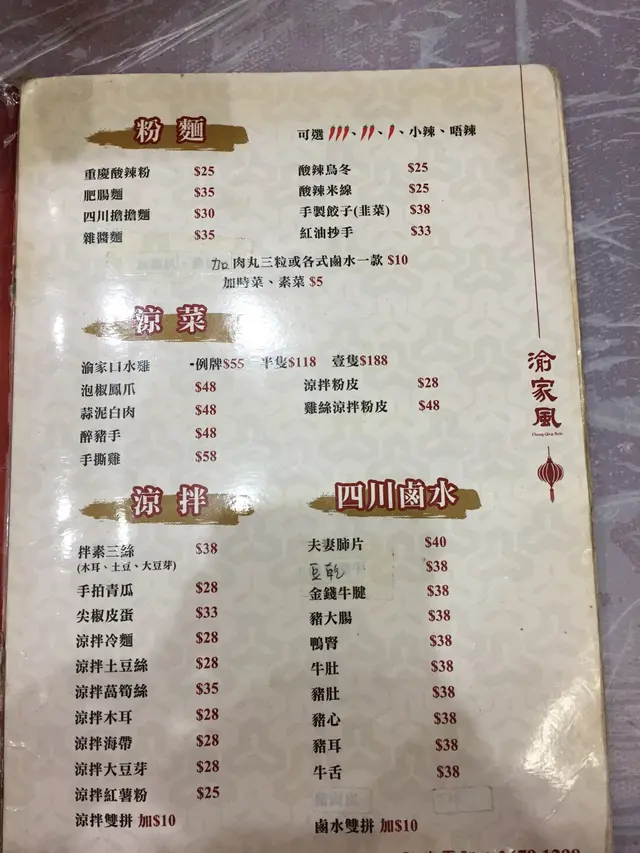 粉麵
可選 、 、 、小辣、唔辣
重慶酸辣粉 $25
酸辣烏冬 $25
肥腸麵 $35
酸辣米線 $25
四川擔擔麵 $30
手製餃子(韭菜) $38
雜醬麵 $35
紅油抄手 $33
加肉丸三粒或各式鹵水一款 $10
加時菜、素菜 $5
涼菜
渝家口水雞 -例牌$55 半隻$118 壹隻$188
泡椒鳳爪 $48
涼拌粉皮 $28
蒜泥白肉 $48
雞絲涼拌粉皮 $48
醉豬手 $48
手撕雞 $58
渝家風
Chong Qing Style
涼拌
拌素三絲 $38
(木耳、土豆、大豆芽)
手拍青瓜 $28
尖椒皮蛋 $33
涼拌冷麵 $28
涼拌土豆絲 $28
涼拌萵筍絲 $35
涼拌木耳 $28
涼拌海帶 $28
涼拌大豆芽 $28
涼拌紅薯粉 $25
涼拌雙拼 加$10
四川鹵水
夫妻肺片 $40
豆乾 $38
金錢牛腱 $38
豬大腸 $38
鴨腎 $38
牛肚 $38
豬肚 $38
豬心 $38
豬耳 $38
牛舌 $38
鹵水雙拼 加$10